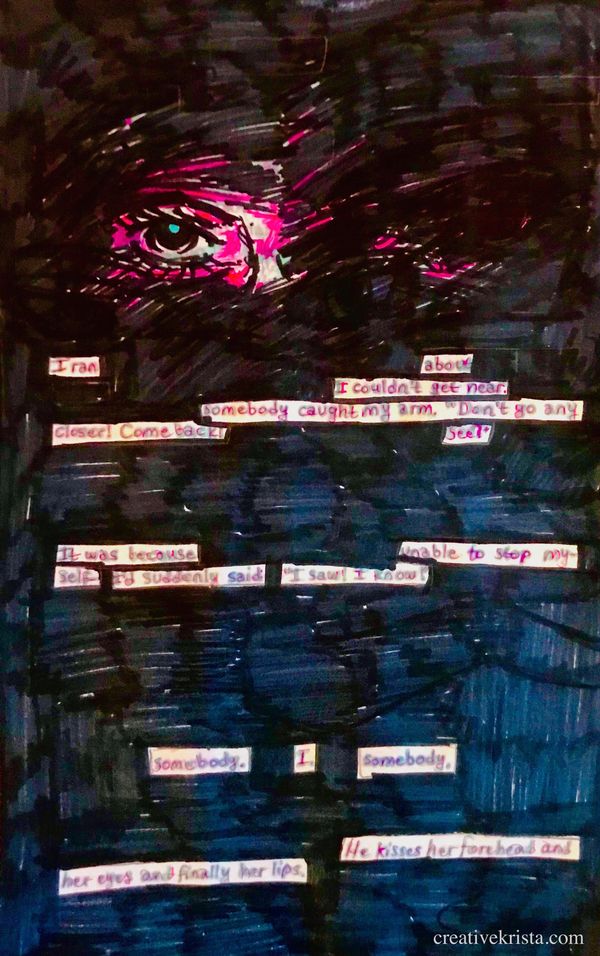 I ran about
I couldn't get near.
somebody caught my arm, "Don't go any
closer! Come back!
It was because unable to stop my-
self I'd suddenly said "I saw! I know!
somebody. I somebody.
He kisses her forehead and
her eyes and finally her lips.
creativekrista.com